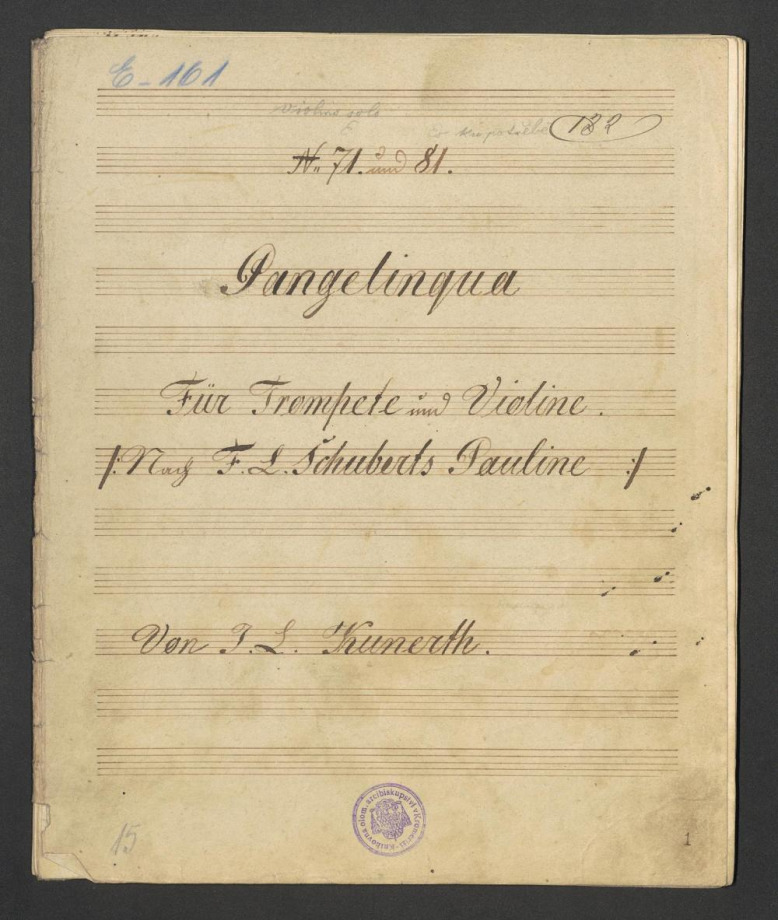 E-161
Violino solo
182
№ 71. und 81.
Pangelinqua
Für Trompete und Violine.
/: Nach F. L. Schuberts Pauline :/
Von J. L. Kunerth.
Knihovna olom. arcibiskupství v Kroměříži
15
1